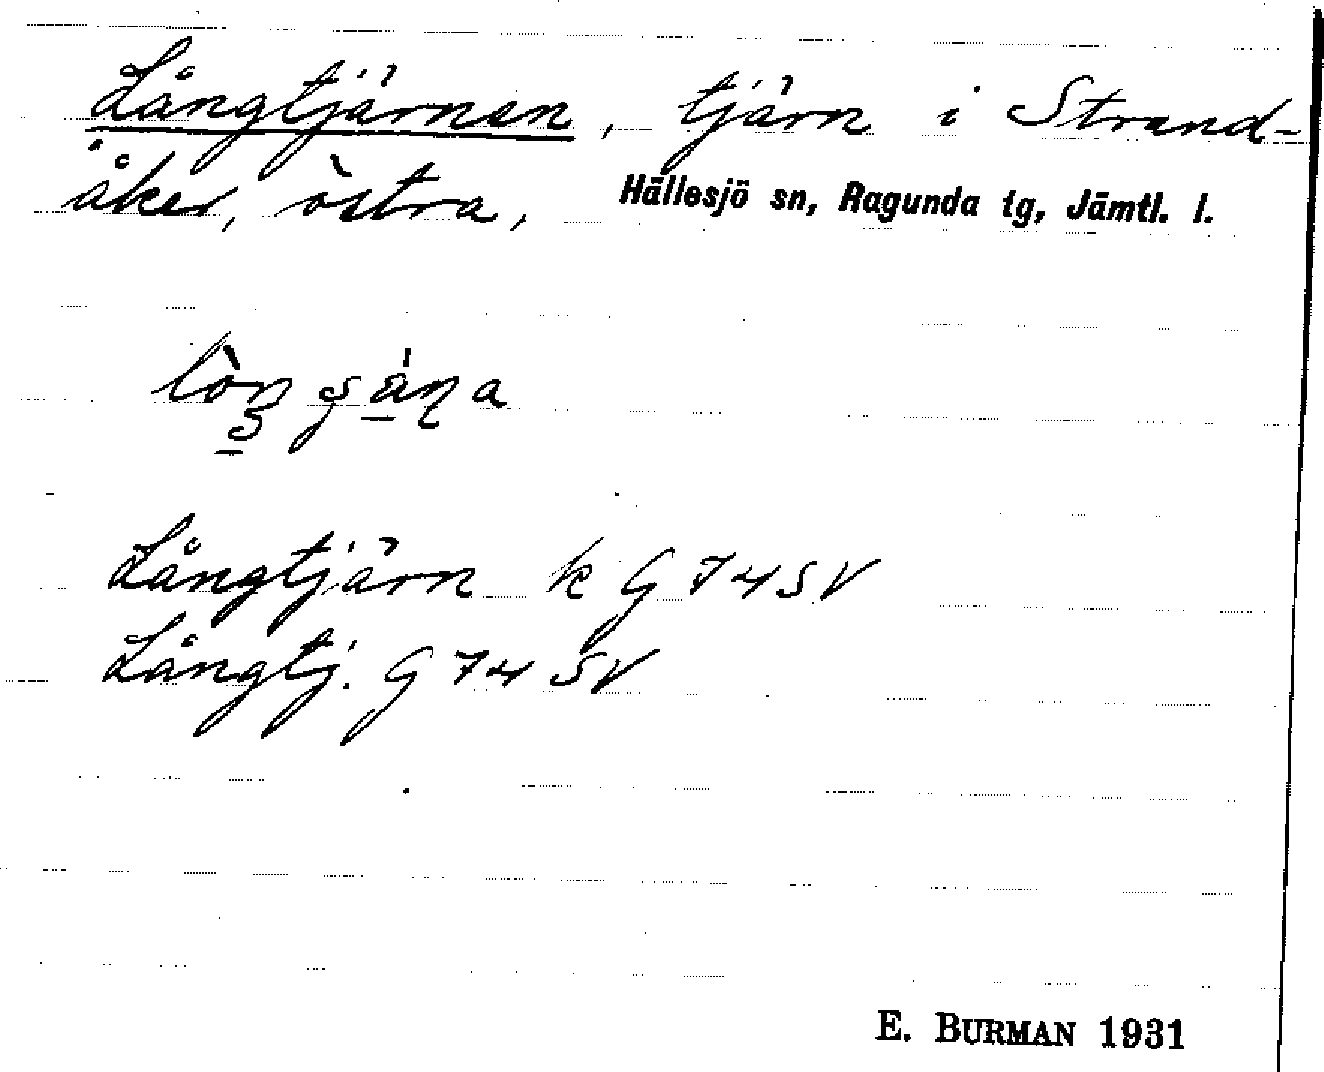 Långtjärnen, tjärn i Strand-
åker, östra, Hällesjö sn, Ragunda tg, Jämtl. l.
Långtjärn k G 74 SV
Långtj. G 74 SV
E. BURMAN 1931